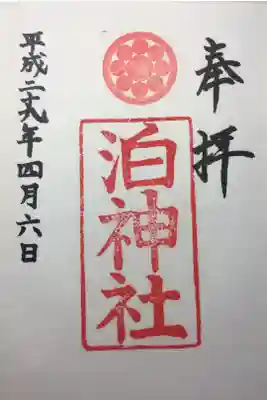 奉拝
泊神社
平成二十九年四月六日